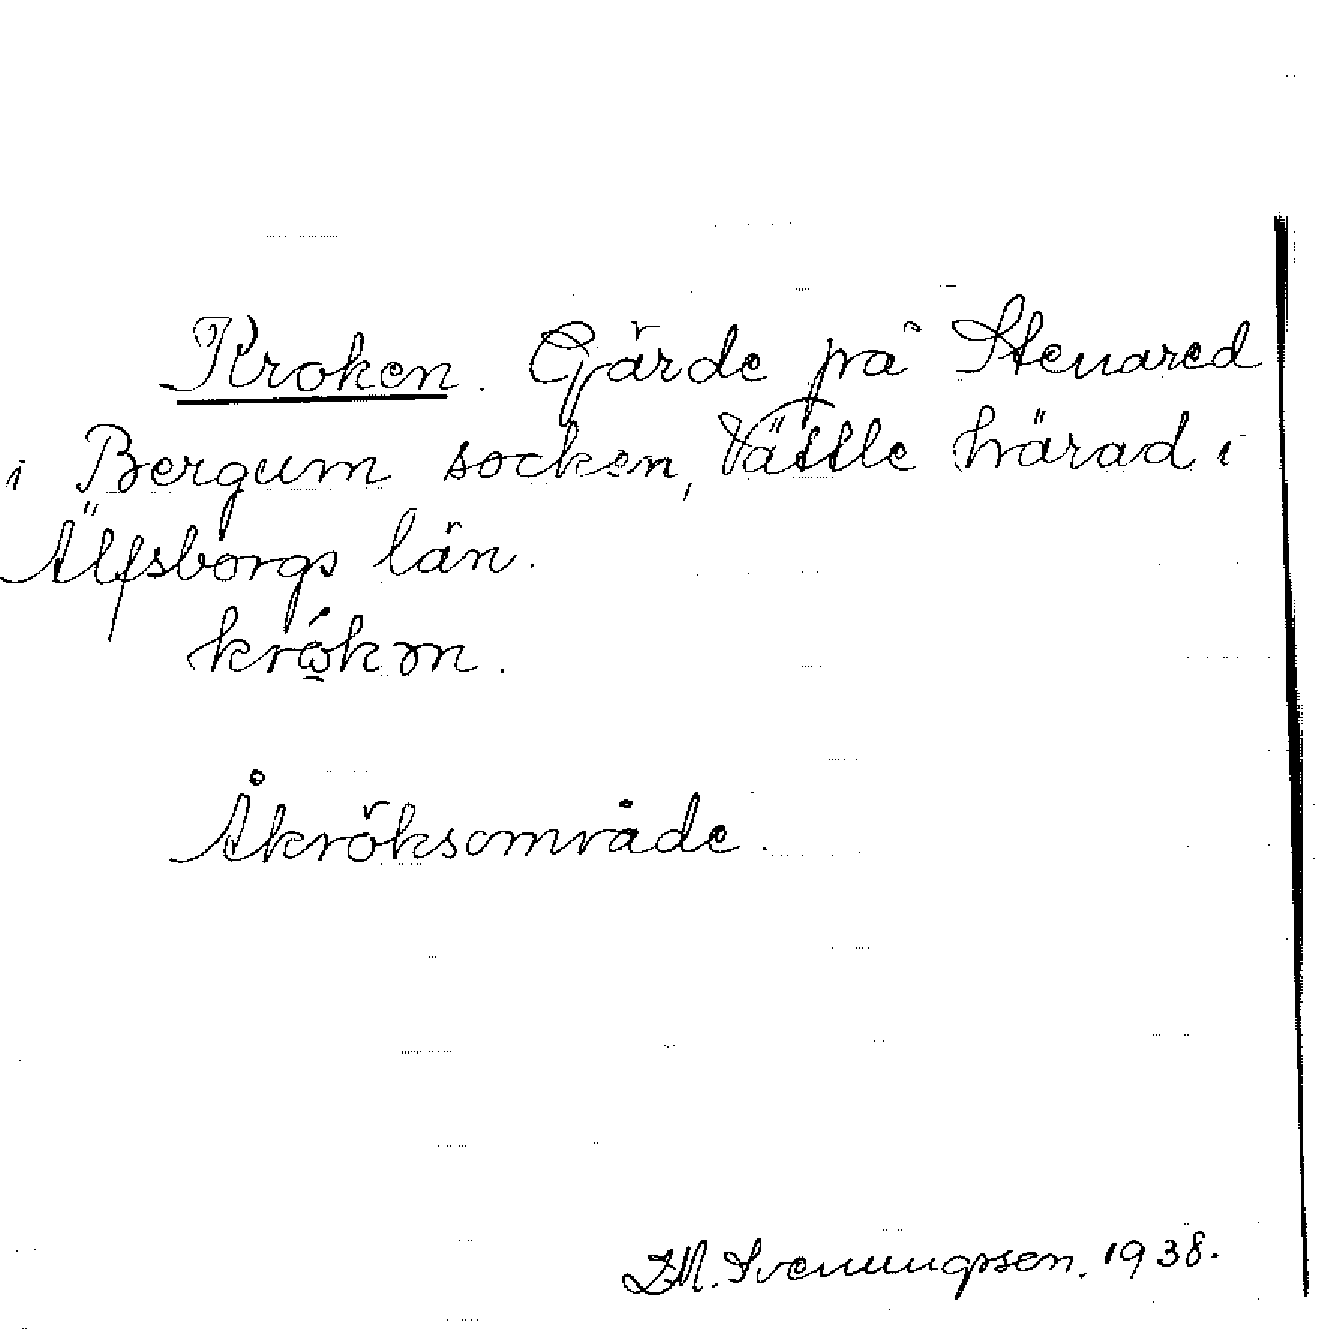 Kroken. Gärde på Stenared
i Bergum socken, Vättle härad i
Älfsborgs län.
krókən.
Åkröksområde.
Svenungsson. 1938.